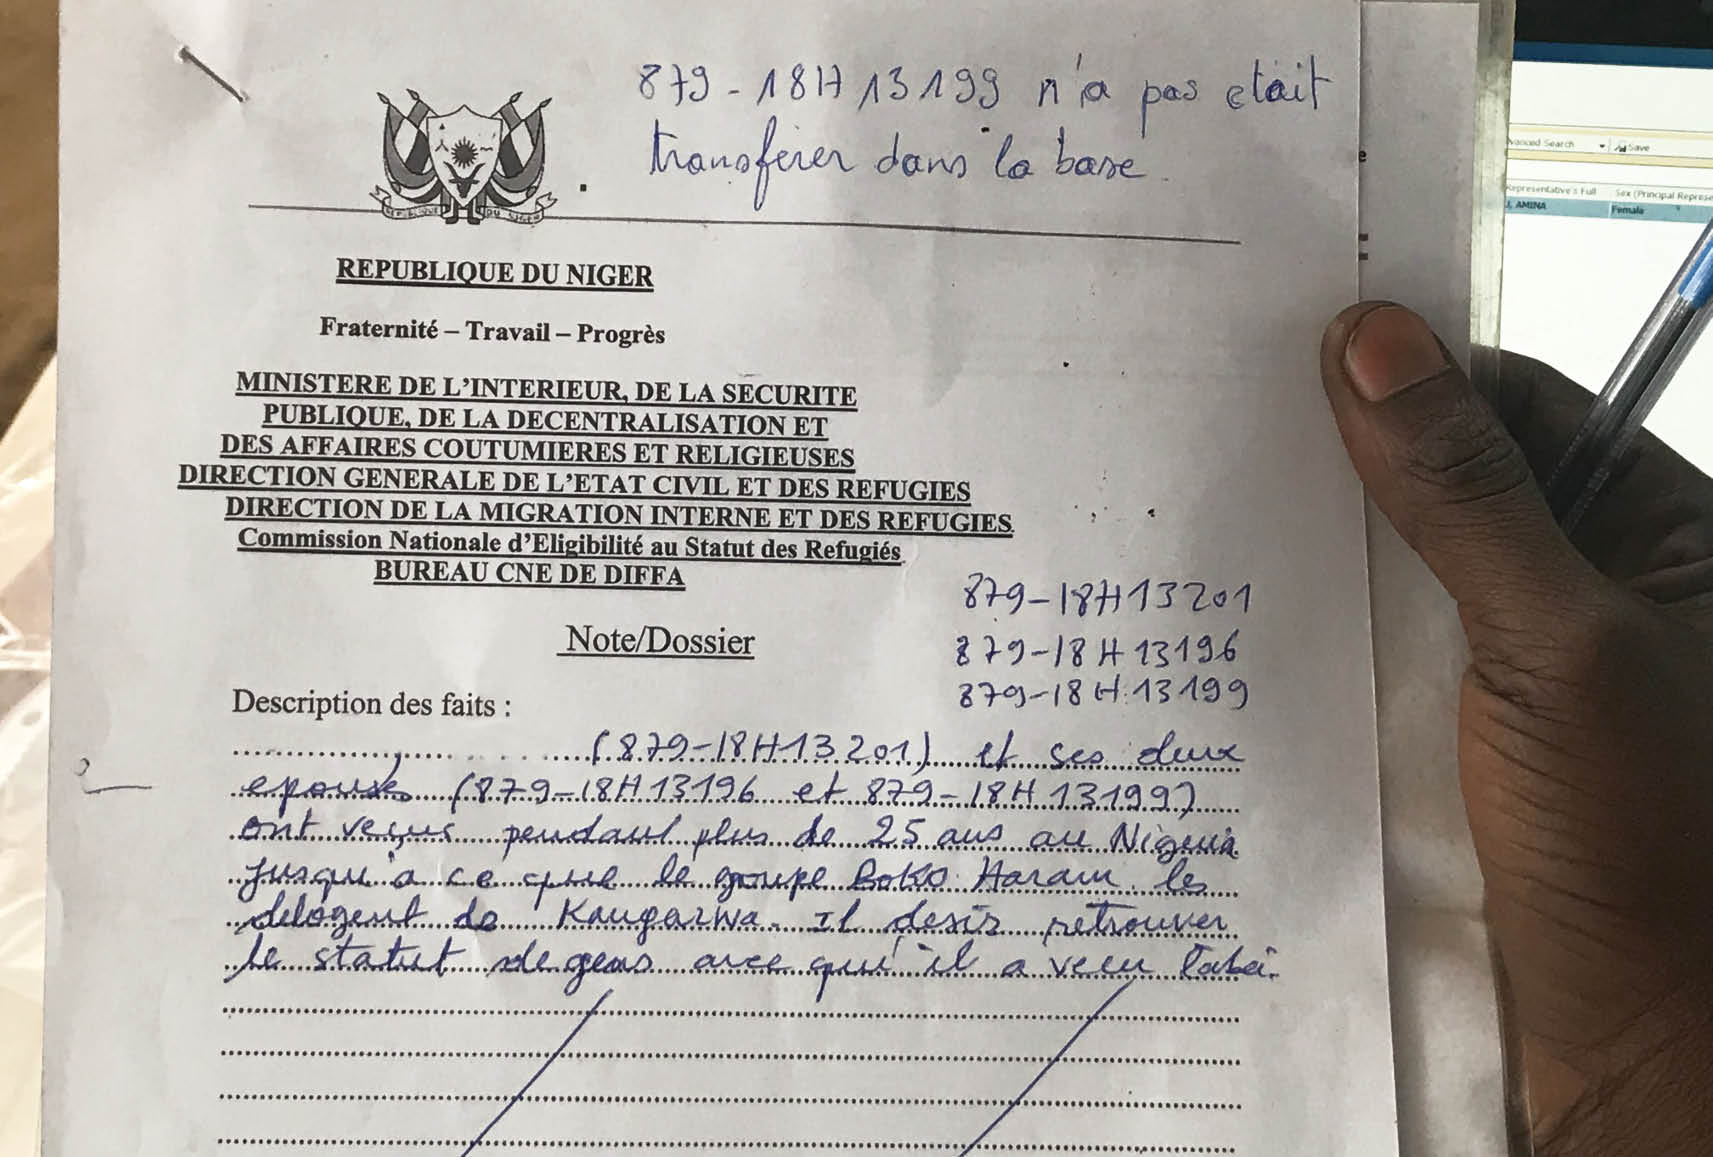 879-18H13199 n'a pas etait
transférer dans la base
REPUBLIQUE DU NIGER
REPUBLIQUE DU NIGER
Fraternité – Travail – Progrès
MINISTERE DE L'INTERIEUR, DE LA SECURITE
PUBLIQUE, DE LA DECENTRALISATION ET
DES AFFAIRES COUTUMIERES ET RELIGIEUSES
DIRECTION GENERALE DE L'ETAT CIVIL ET DES REFUGIES
DIRECTION DE LA MIGRATION INTERNE ET DES REFUGIES
Commission Nationale d'Eligibilité au Statut des Refugiés
BUREAU CNE DE DIFFA
879-18H13201
Note/Dossier
879-18H13196
879-18H13199
Description des faits :
(879-18H13201) et ses deux
epouses (879-18H13196 et 879-18H13199)
ont veçus pendant plus de 25 ans au Nigeria
jusqu'a ce que le groupe Boko Haram les
delogent de Kaugarwa. Il desir retrouver
le statut de gens avec qu'il a vecu
Advanced Search Save
Representative's Full Sex (Principal Represe
AMINA Female